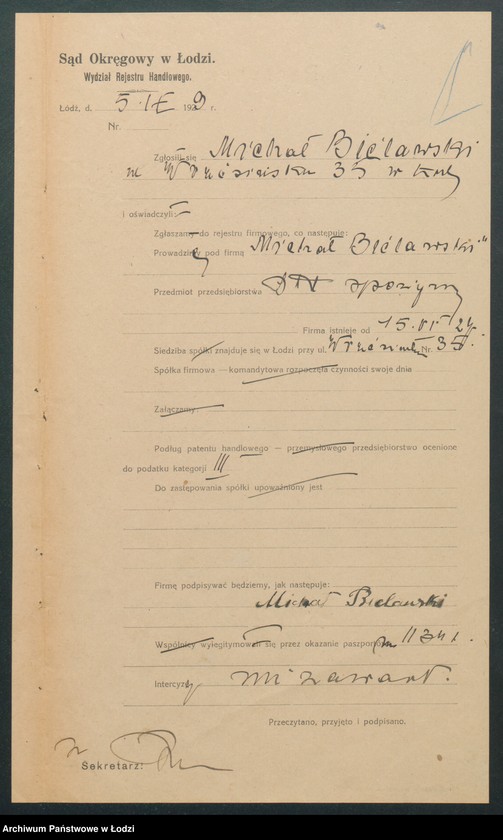 Sąd Okręgowy w Łodzi.
Wydział Rejestru Handlowego.
Łódź, d. 5.IX 1929 r.
Nr.
Zgłosili się Michał Bielawski
35 w
i oświadczyli:
Zgłaszamy do rejestru firmowego, co następuje:
Prowadzimy pod firmą „Michał Bielawski"
Przedmiot przedsiębiorstwa
Firma istnieje od 15.VI 24.
Siedziba spółki znajduje się w Łodzi przy ul. Nr. 35.
Spółka firmowa — komandytowa rozpoczęła czynności swoje dnia
Załączamy:
Podług patentu handlowego — przemysłowego przedsiębiorstwo ocenione
do podatku kategorji III
Do zastępowania spółki upoważniony jest
Firmę podpisywać będziemy, jak następuje:
Michał Bielawski
Wspólnicy wylegitymowali się przez okazanie paszportów
Intercyzy nie zawarł.
Przeczytano, przyjęto i podpisano.
Sekretarz:
Archiwum Państwowe w Łodzi